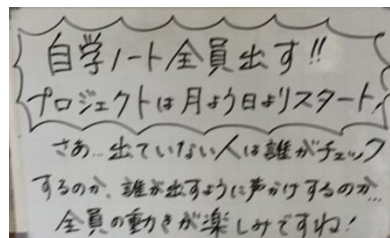 自学ノート全員出す!!
プロジェクトは月よう日よりスタート!
さあ…出ていない人は誰がチェック
するのか、誰が出すように声かけするのか…
全員の動きが楽しみですね!